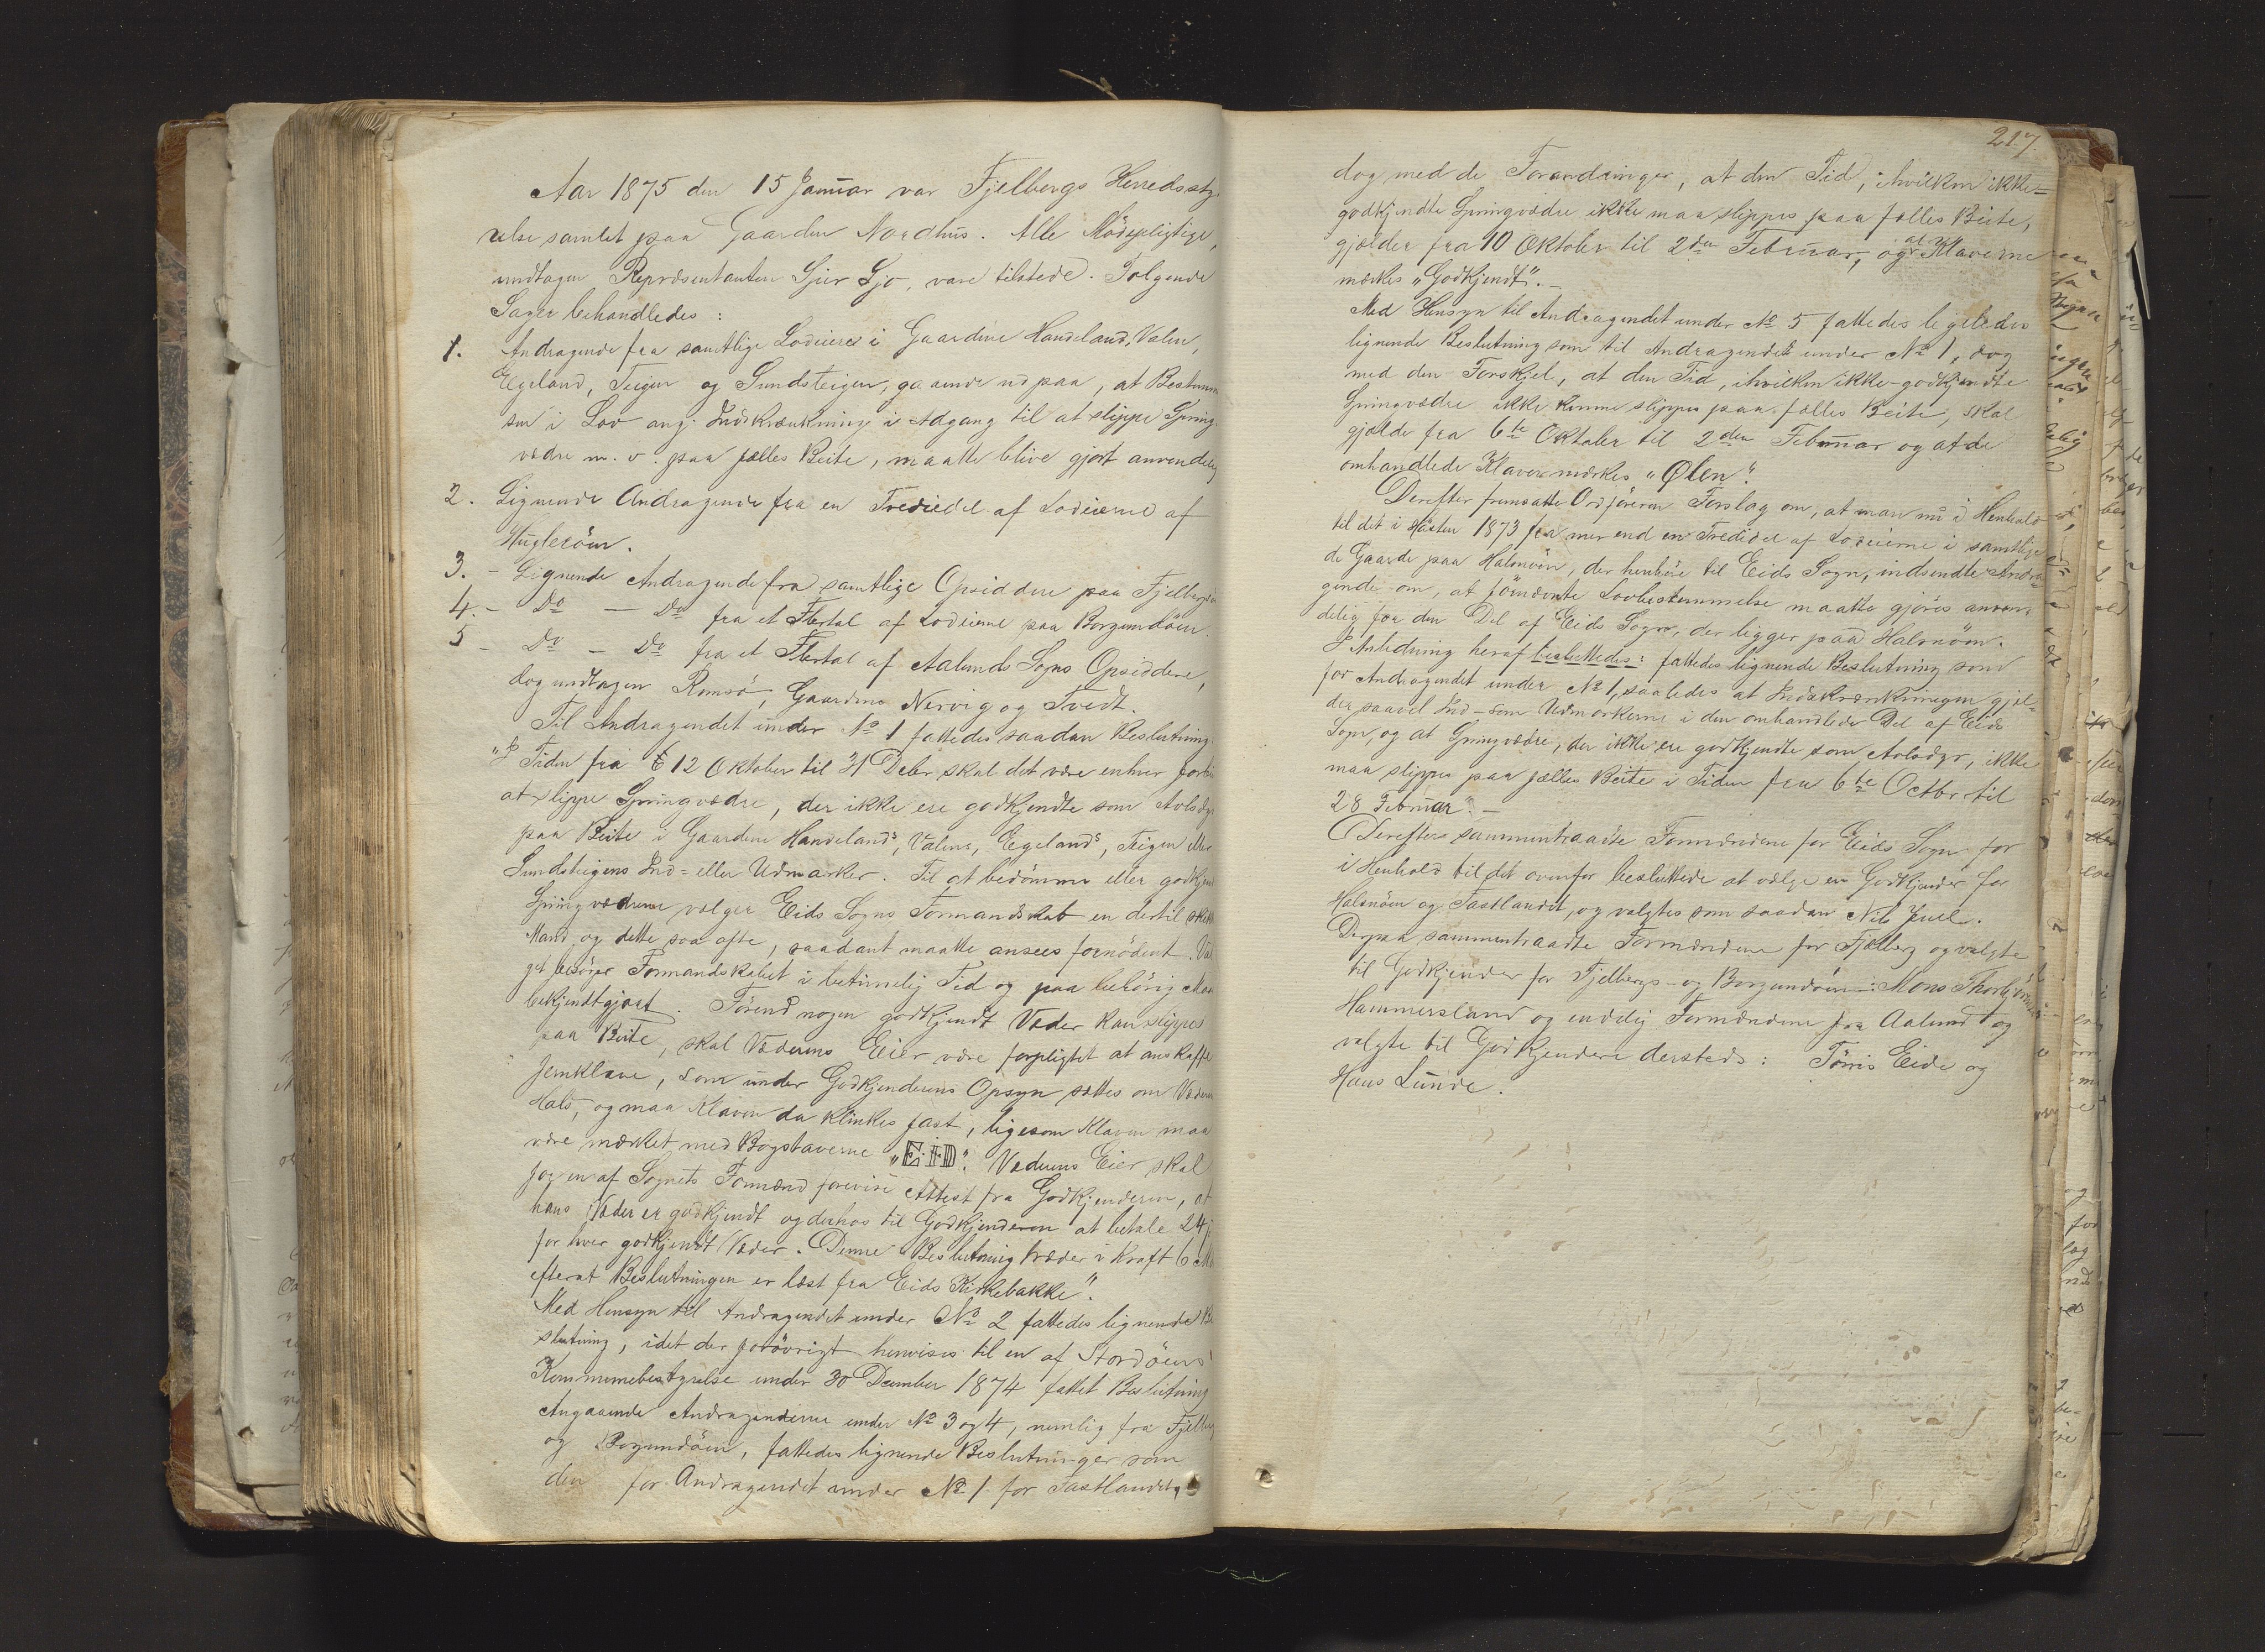 Aar 1875 den 15 Januar var Fjelbergs Herredssty-
relse samlet paa Gaarden Nordhus. Alle Mödepligtige,
undtagen Repræsentanten Gjer Sjo, vare tilstede. Følgende
Sager behandledes:
1. Andragende fra samtlige Lodeiere i Gaardene Handeland, Valen,
Egeland, Teigen og Sundsteigen, gaaende ud paa, at Bestemm
sen i Lov ang. Indskrænkning i Adgang til at slippe Spring-
vædre m. v. paa fælles Beite, maatte blive gjort anvendelig
2. Lignende Andragende fra en Trediedel af Lodeierne af
Huglesöen.
3. - Lignende Andragende fra samtlige Opsiddere paa Fjelbergö
4. - Do - Do fra et Flertal af Lodeierne paa Borgundöen.
5 - Do - Do fra et Flertal af Aalunds Sogns Opsiddere,
dog undtagen Romsö, Gaardene Nervig og Tvedt.
Til Andragendet under No 1 fattedes saadan Beslutning:
"I Tiden fra 12 Oktober til 31 Decbr skal det være enhver forbu
at slippe Springvædre, der ikke ere godkjendte som Avlsdyr
paa Beite i Gaardene Handelands, Valens, Egelands, Teigen eller
Sundsteigens Ind- eller Udmarker. Til at bedömme eller godkjen
Springvædrene vælger Eids Sogns Formandskab en dertil skik
Mand og dette saa ofte, saadant maatte ansees fornödent. Val
get besörger Formandskabet i betimelig Tid og paa behörig Maa
bekjendtgjort. Förend nogen godkjendt Væder kan slippes
paa Beite, skal Væderens Eier være forpligtet at anskaffe
Jernklave, som under Godkjenderens Opsyn sættes om Væderen
Hals, og maa Klaven da klinkes fast, ligesom Klaven maa
være mærket med Bogstaverne "EID". Væderens Eier skal
for en af Sognets Formænd forevise Attest fra Godkjenderen, at
hans Væder er godkjendt og derhos til Godkjenderen at betale 24
for hver godkjendt Væder. Denne Beslutning træder i Kraft 6 M
efterat Beslutningen er læst fra Eids Kirkebakke".
Med Hensyn til Andragendet under No 2 fattedes lignende Be
slutning, idet der forövrigt henvises til en af Stordöens
Kommunebestyrelse under 30 December 1874 fattet Beslutning
Angaaende Andragenderne under No 3 og 4, nemlig fra Fjelberg
og Borgundöen, fattedes lignende Beslutninger som
den for Andragendet under No 1 for Fastlandet,
217
dog med de Forandringer, at den Tid, ihvilken ikke-
godkjendte Springvædre ikke maa slippes paa fælles Beite,
gjælder fra 10 Oktober til 2den Februar, og at Klaverne
mærkes "Godkjendt". -
Med Hensyn til Andragendet under No 5 fattedes ligeledes
lignende Beslutning som til Andragendet under No 1, dog
med den Forskjel, at den Tid, ihvilken ikke-godkjendte
Springvædre ikke kunne slippes paa fælles Beite, skal
gjælde fra 6te Oktober til 2den Februar og at de
omhandlede Klaver mærkes "Ølen".
Derefter fremsatte Ordföreren Forslag om, at man nu i Henhold
til det i Hösten 1873 fra mer end en Trediedel af Lodeierne i samtlige
de Gaarde paa Halsnöen, der henhöre til Eids Sogn, indsendte Andra-
gende om, at fornævnte Lovbestemmelse maatte gjöres anven-
delig for den Del af Eids Sogn, der ligger paa Halsnöen.
I Anledning heraf besluttedes: fattedes lignende Beslutning som
for Andragendet under No 1, saaledes at Indskrænkningen gjæl-
der saavel Ind- som Udmarkerne i den omhandlede Del af Eids
Sogn, og at Springvædre, der ikke ere godkjendte som Avlsdyr, ikke
maa slippes paa fælles Beite i Tiden fra 6te Octbr til
28 Februar". -
Derefter sammentraadte Formændene for Eids Sogn for
i Henhold til det ovenfor besluttede at vælge en Godkjender for
Halsnöen og Fastlandet, og valgtes som saadan Nils Juel.
Derpaa sammentraadte Formændene for Fjelberg og valgte
til Godkjender for Fjelbergs- og Borgundöen: Mons Thorbjörnsen
Hammersland og endelig Formændene fra Aalund og
valgte til Godkjendere dersteds: Törris Eide og
Hans Lunde.